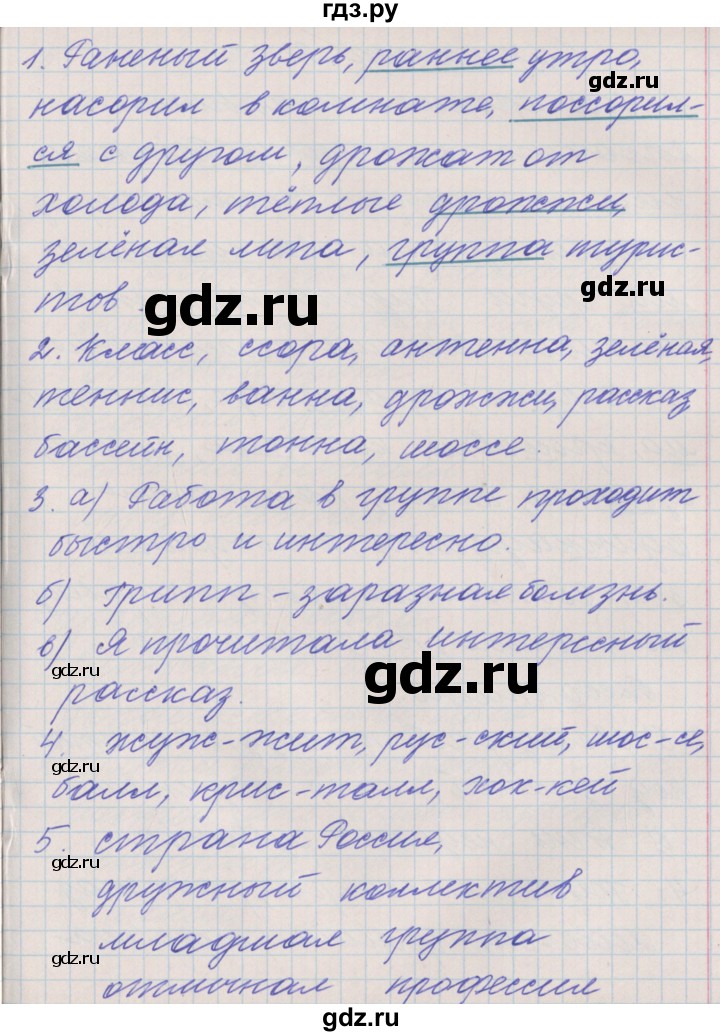 гдз.ру
1. Раненый зверь, раннее утро,
gdz.ru
насорил в комнате, поссорил-
ся с другом, дрожат от
холода, тёплые дрожжи,
зелёная липа, группа турис-
gdz.ru
тов.
gdz.ru
2. Класс, ссора, антенна, зелёная,
теннис, ванна, дрожжи, рассказ,
бассейн, тонна, шоссе.
3. а) Работа в группе проходит
быстро и интересно.
б) Грипп - заразная болезнь.
в) Я прочитала интересный
gdz.ru
gdz.ru
рассказ.
4. жуж-жит, рус-ский, шос-се,
gdz.ru
балл, крис-талл, хок-кей
5. страна Россия,
gdz.ru
дружный коллектив
младшая группа
gdz.ru
отличная профессия
gdz.ru